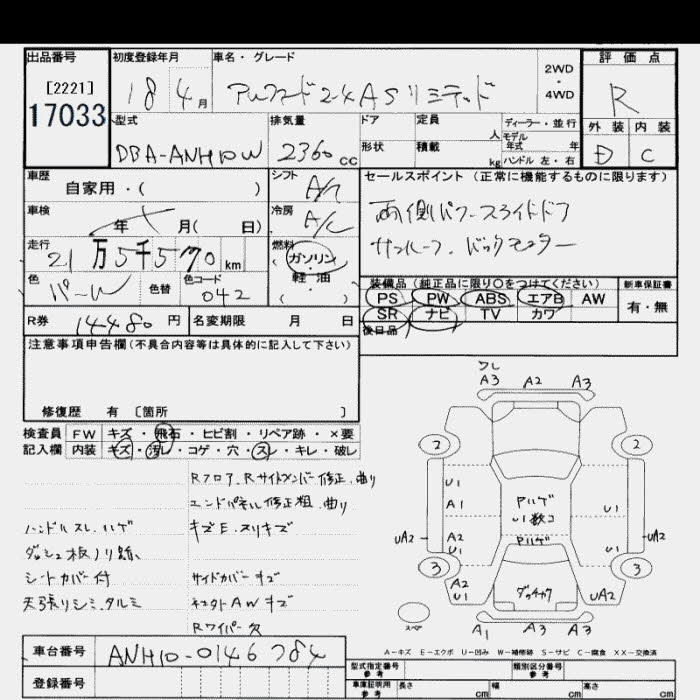 出品番号 初度登録年月 車名・グレード 2WD・4WD 評価点
[2221]
17033
18 4月 アルファード 2.4 AS リミテッド R
外装 内装
D C
型式 排気量 ドア 定員 人 ディーラー・並行
モデル年式 年
DBA-ANH10W 2360cc 形状 積載 kg ハンドル 左・右
車歴 シフト セールスポイント(正常に機能するものに限ります)
自家用・( )
車検 冷房 A/C 両側パワースライドドア
年 月( 日) サンルーフ.バックモニター
走行 燃料
21万5千570km (ガソリン・軽油・( )
色 パール 色替 色コード 042
装備品(純正品に限り○をつけてください) 新車保証書
PS PW ABS エアB AW 有・無
SR ナビ TV カワ
R券 14480円 名変期限 月 日 後日品
注意事項申告欄(不具合内容等は具体的に記入して下さい)
修復歴 有 [箇所 ]
検査員 FW キズ・飛石・ヒビ割・リペア跡・×要
記入欄 内装 キズ・汚レ・コゲ・穴・スレ・キレ・破レ
Rフロア.Rサイドメンバー修正.曲り
エンドパネル修正粗.曲り
ハンドルスレ.ハゲ キズE.スリキズ
ダッシュ板ノリ跡
シートカバー付 サイドカバーキズ
天張リシミ.タルミ AWキズ
Rワイパー欠
ワレ
A3 A2 A3
2 2
U1
A1 アルゲ U1
U1数コ
UA2 A2 U1 アハゲ U1 UA2
3 3
A2 U1 UA2
スペア A1 A3 A3
A-キズ E-エクボ U-凹み W-補修跡 S-サビ C-腐食 XX-交換済
車台番号 ANH10-0146784
型式指定番号 参考 類別区分番号 参考
登録番号 車庫証明用 参考 長さ cm 幅 cm 高さ cm